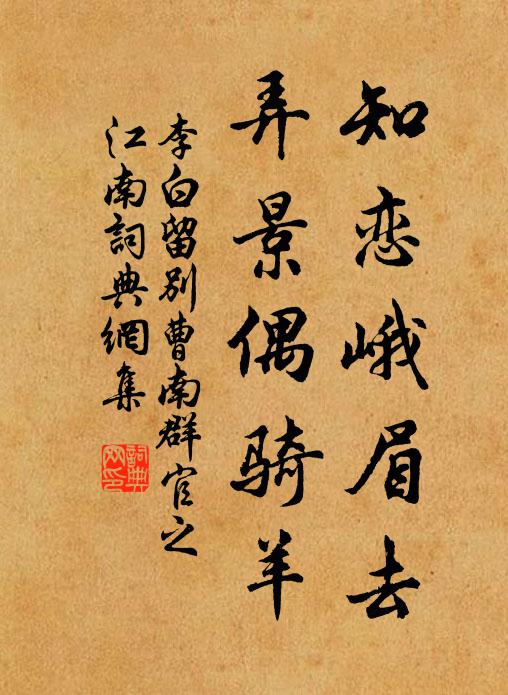 知恋峨眉去
弄景偶骑羊
李白留别曹南群官之
江南詞典網集
詞典
网印